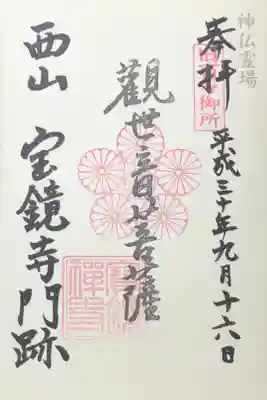 神仏霊場
奉拝
百々御所
平成三十年九月十六日
觀世音菩薩
西山 宝鏡寺門跡